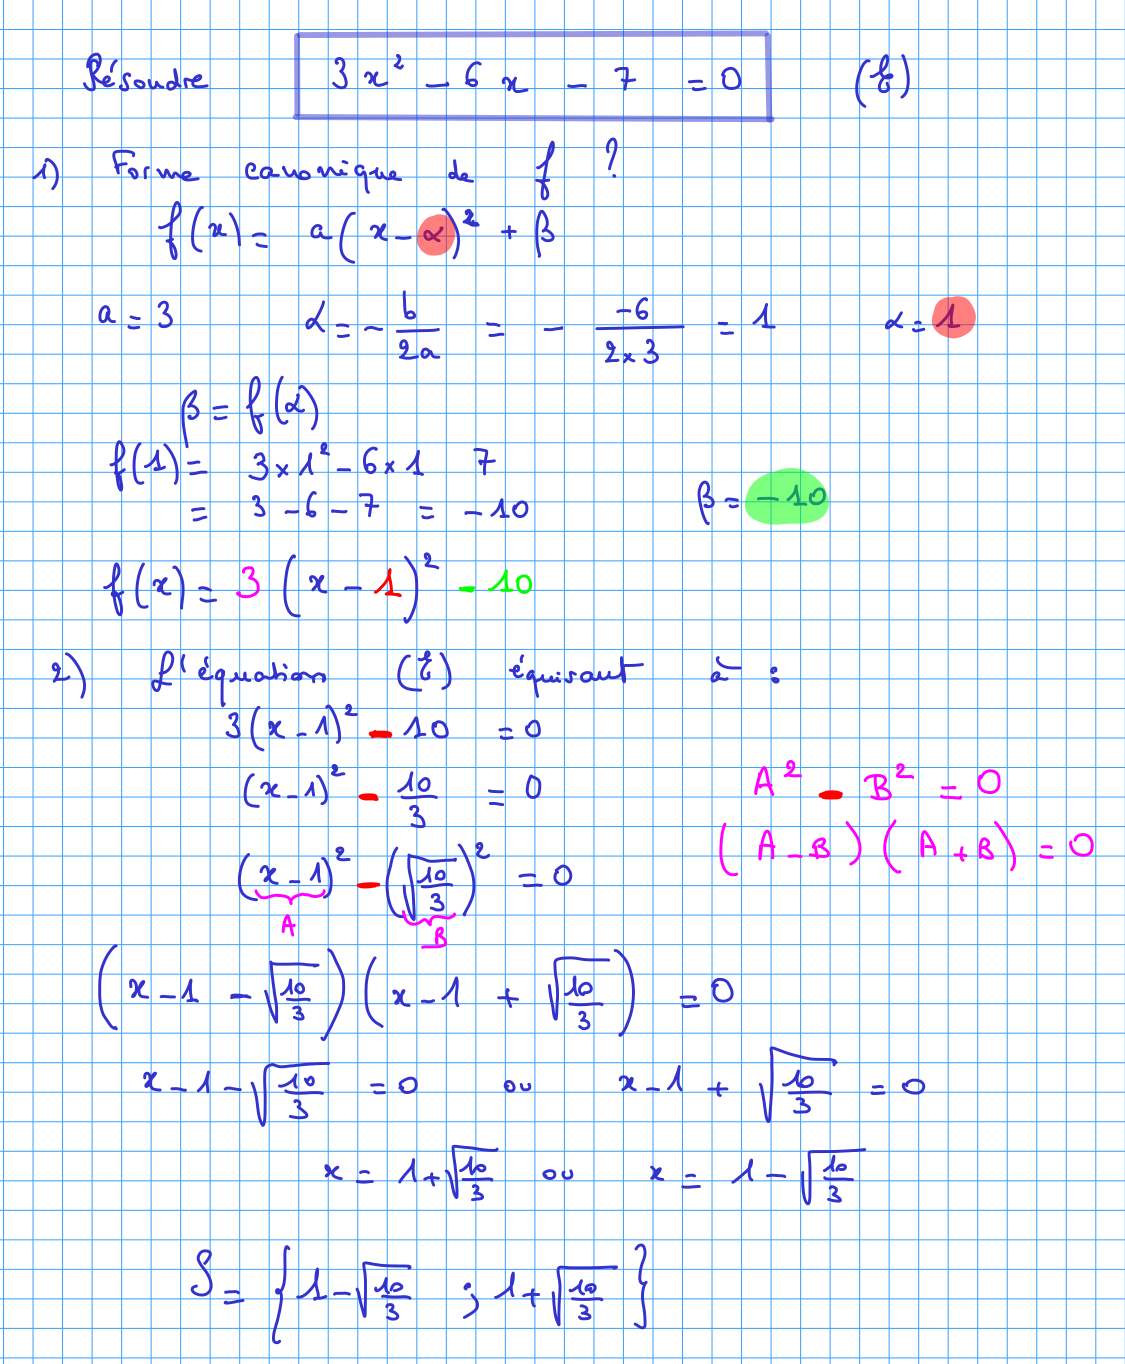 Résoudre 3x² - 6x - 7 = 0 (E)
1) Forme canonique de f ?
f(x) = a(x - α)² + β
a = 3 α = - b/2a = - -6/(2×3) = 1 α = 1
β = f(α)
f(1) = 3×1² - 6×1 7
= 3 - 6 - 7 = -10 β = -10
f(x) = 3 (x - 1)² - 10
2) L'équation (E) équivaut à :
3(x - 1)² - 10 = 0
(x - 1)² - 10/3 = 0 A² - B² = 0
(A - B)(A + B) = 0
(x - 1)² - (√(10/3))² = 0
A B
(x - 1 - √(10/3)) (x - 1 + √(10/3)) = 0
x - 1 - √(10/3) = 0 ou x - 1 + √(10/3) = 0
x = 1 + √(10/3) ou x = 1 - √(10/3)
S = {1 - √(10/3) ; 1 + √(10/3)}